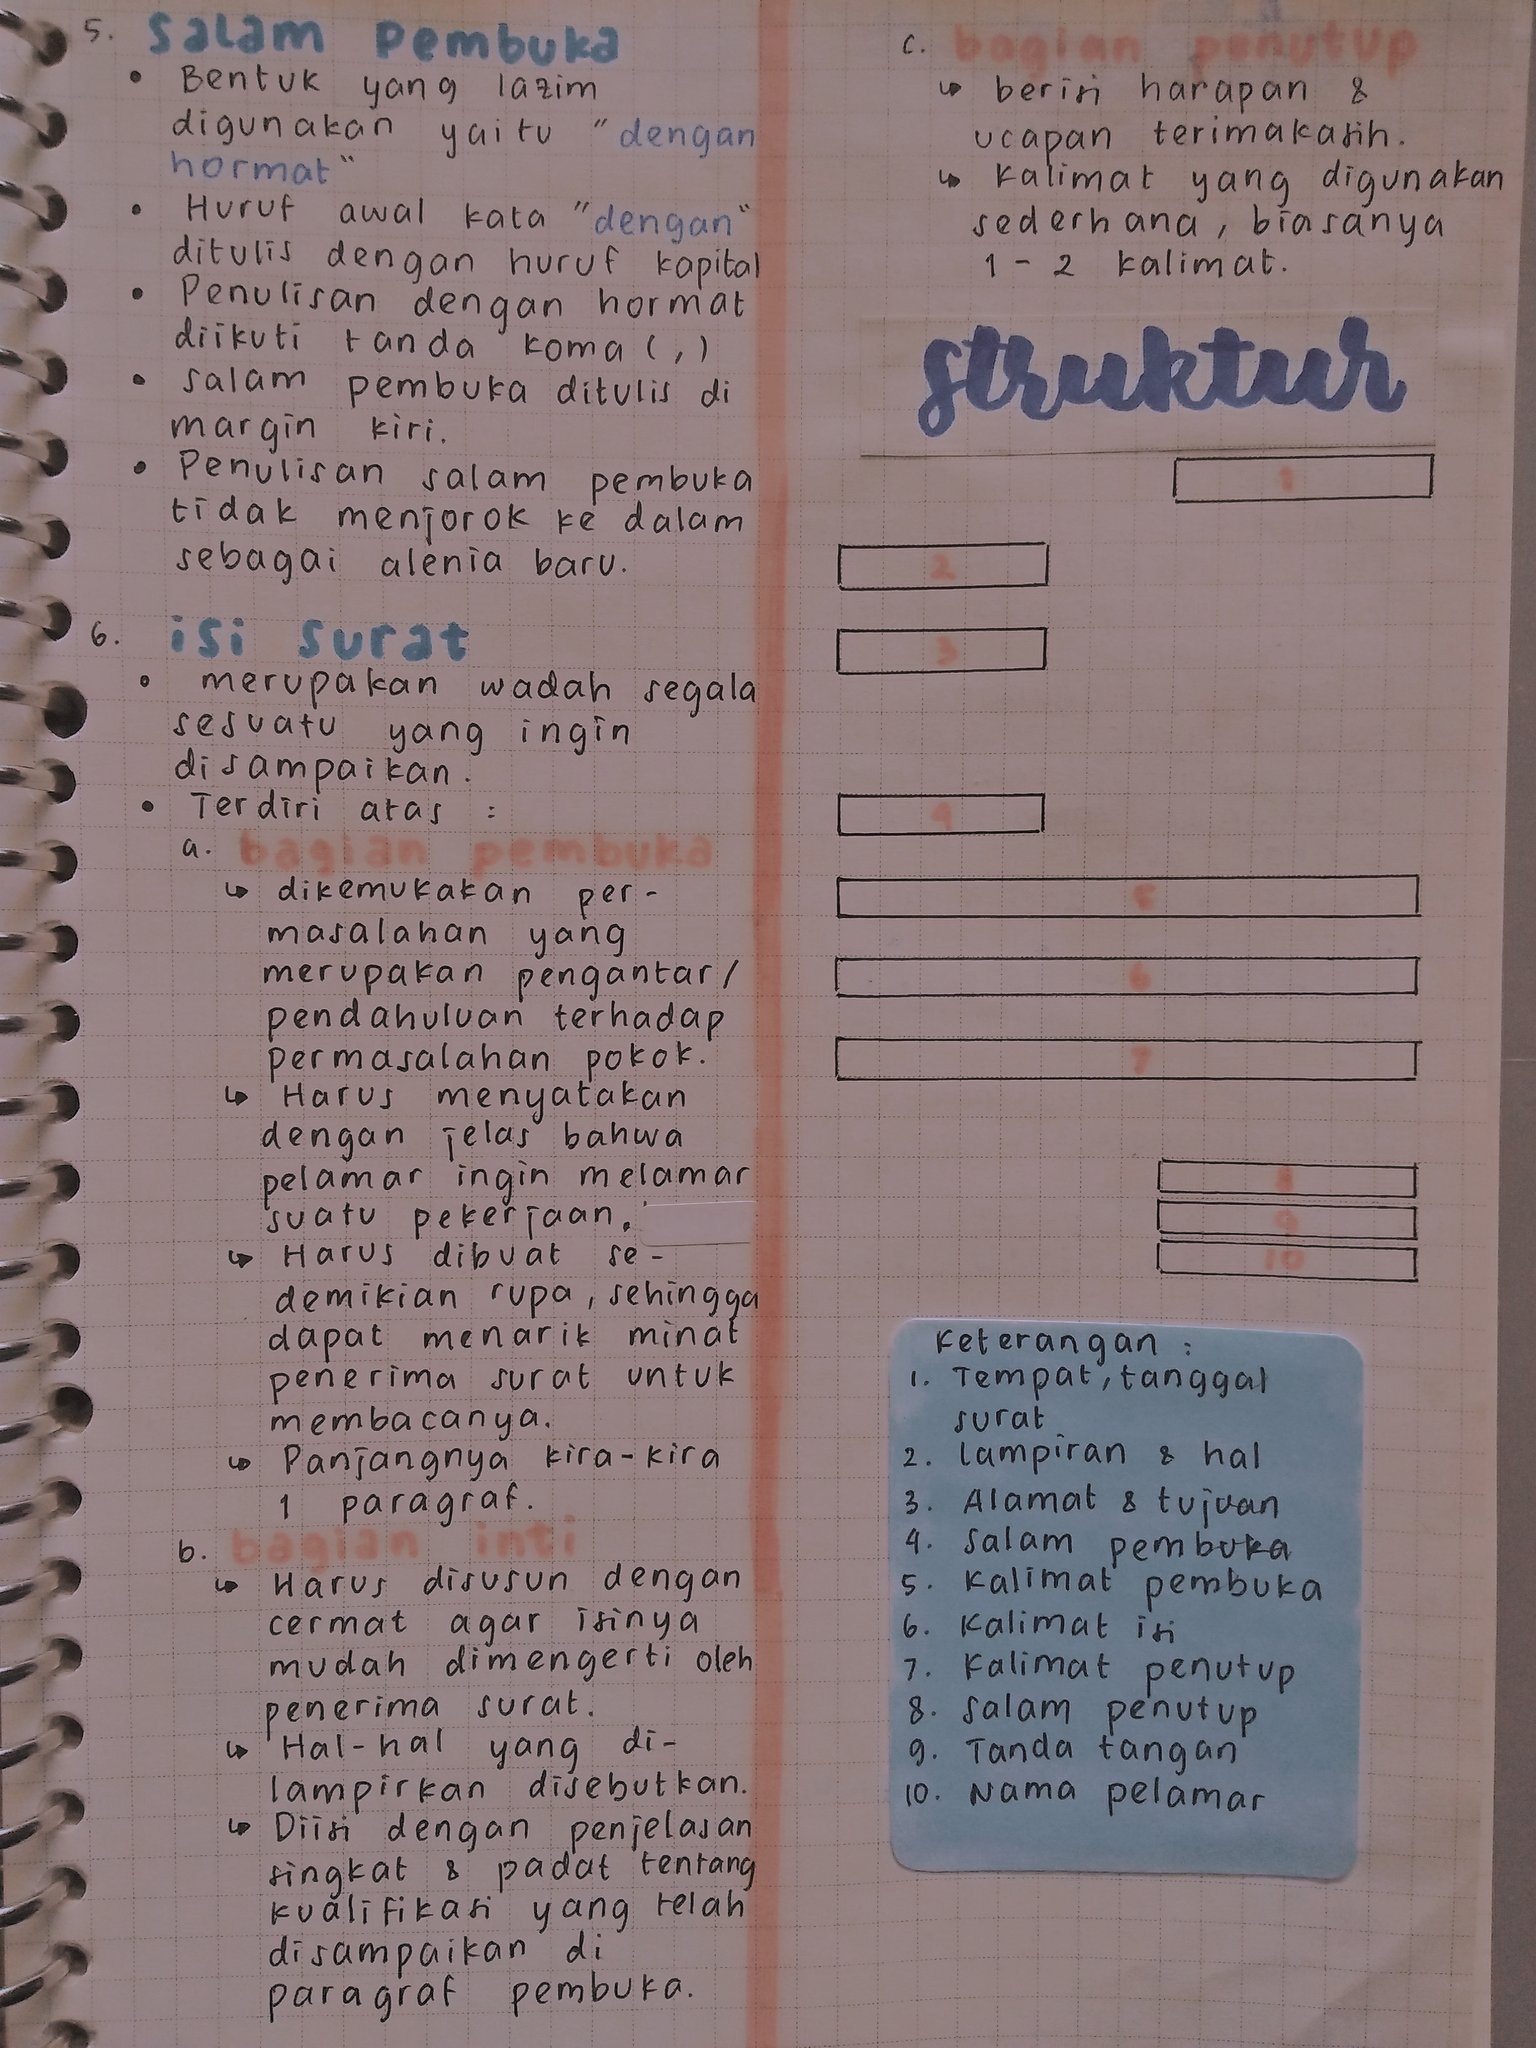 5. Salam Pembuka
• Bentuk yang lazim
digunakan yaitu "dengan
hormat"
• Huruf awal kata "dengan"
ditulis dengan huruf kapital
• Penulisan dengan hormat
diikuti tanda koma (,)
• Salam pembuka ditulis di
margin kiri.
• Penulisan salam pembuka
tidak menjorok ke dalam
sebagai alenia baru.
6. isi surat
• merupakan wadah segala
sesuatu yang ingin
disampaikan.
• Terdiri atas :
a. bagian pembuka
↳ dikemukakan per-
masalahan yang
merupakan pengantar/
pendahuluan terhadap
permasalahan pokok.
↳ Harus menyatakan
dengan jelas bahwa
pelamar ingin melamar
suatu pekerjaan.
↳ Harus dibuat se-
demikian rupa, sehingga
dapat menarik minat
penerima surat untuk
membacanya.
↳ Panjangnya kira-kira
1 paragraf.
b. bagian inti
↳ Harus disusun dengan
cermat agar isinya
mudah dimengerti oleh
penerima surat.
↳ Hal-hal yang di-
lampirkan disebutkan.
↳ Diisi dengan penjelasan
singkat & padat tentang
kualifikasi yang telah
disampaikan di
paragraf pembuka.
c. bagian penutup
↳ berisi harapan &
ucapan terimakasih.
↳ Kalimat yang digunakan
sederhana, biasanya
1 - 2 kalimat.
struktur
1
2
3
4
5
6
7
8
9
10
Keterangan :
1. Tempat, tanggal
surat
2. Lampiran & hal
3. Alamat & tujuan
4. Salam pembuka
5. Kalimat pembuka
6. Kalimat isi
7. Kalimat penutup
8. Salam penutup
9. Tanda tangan
10. Nama pelamar